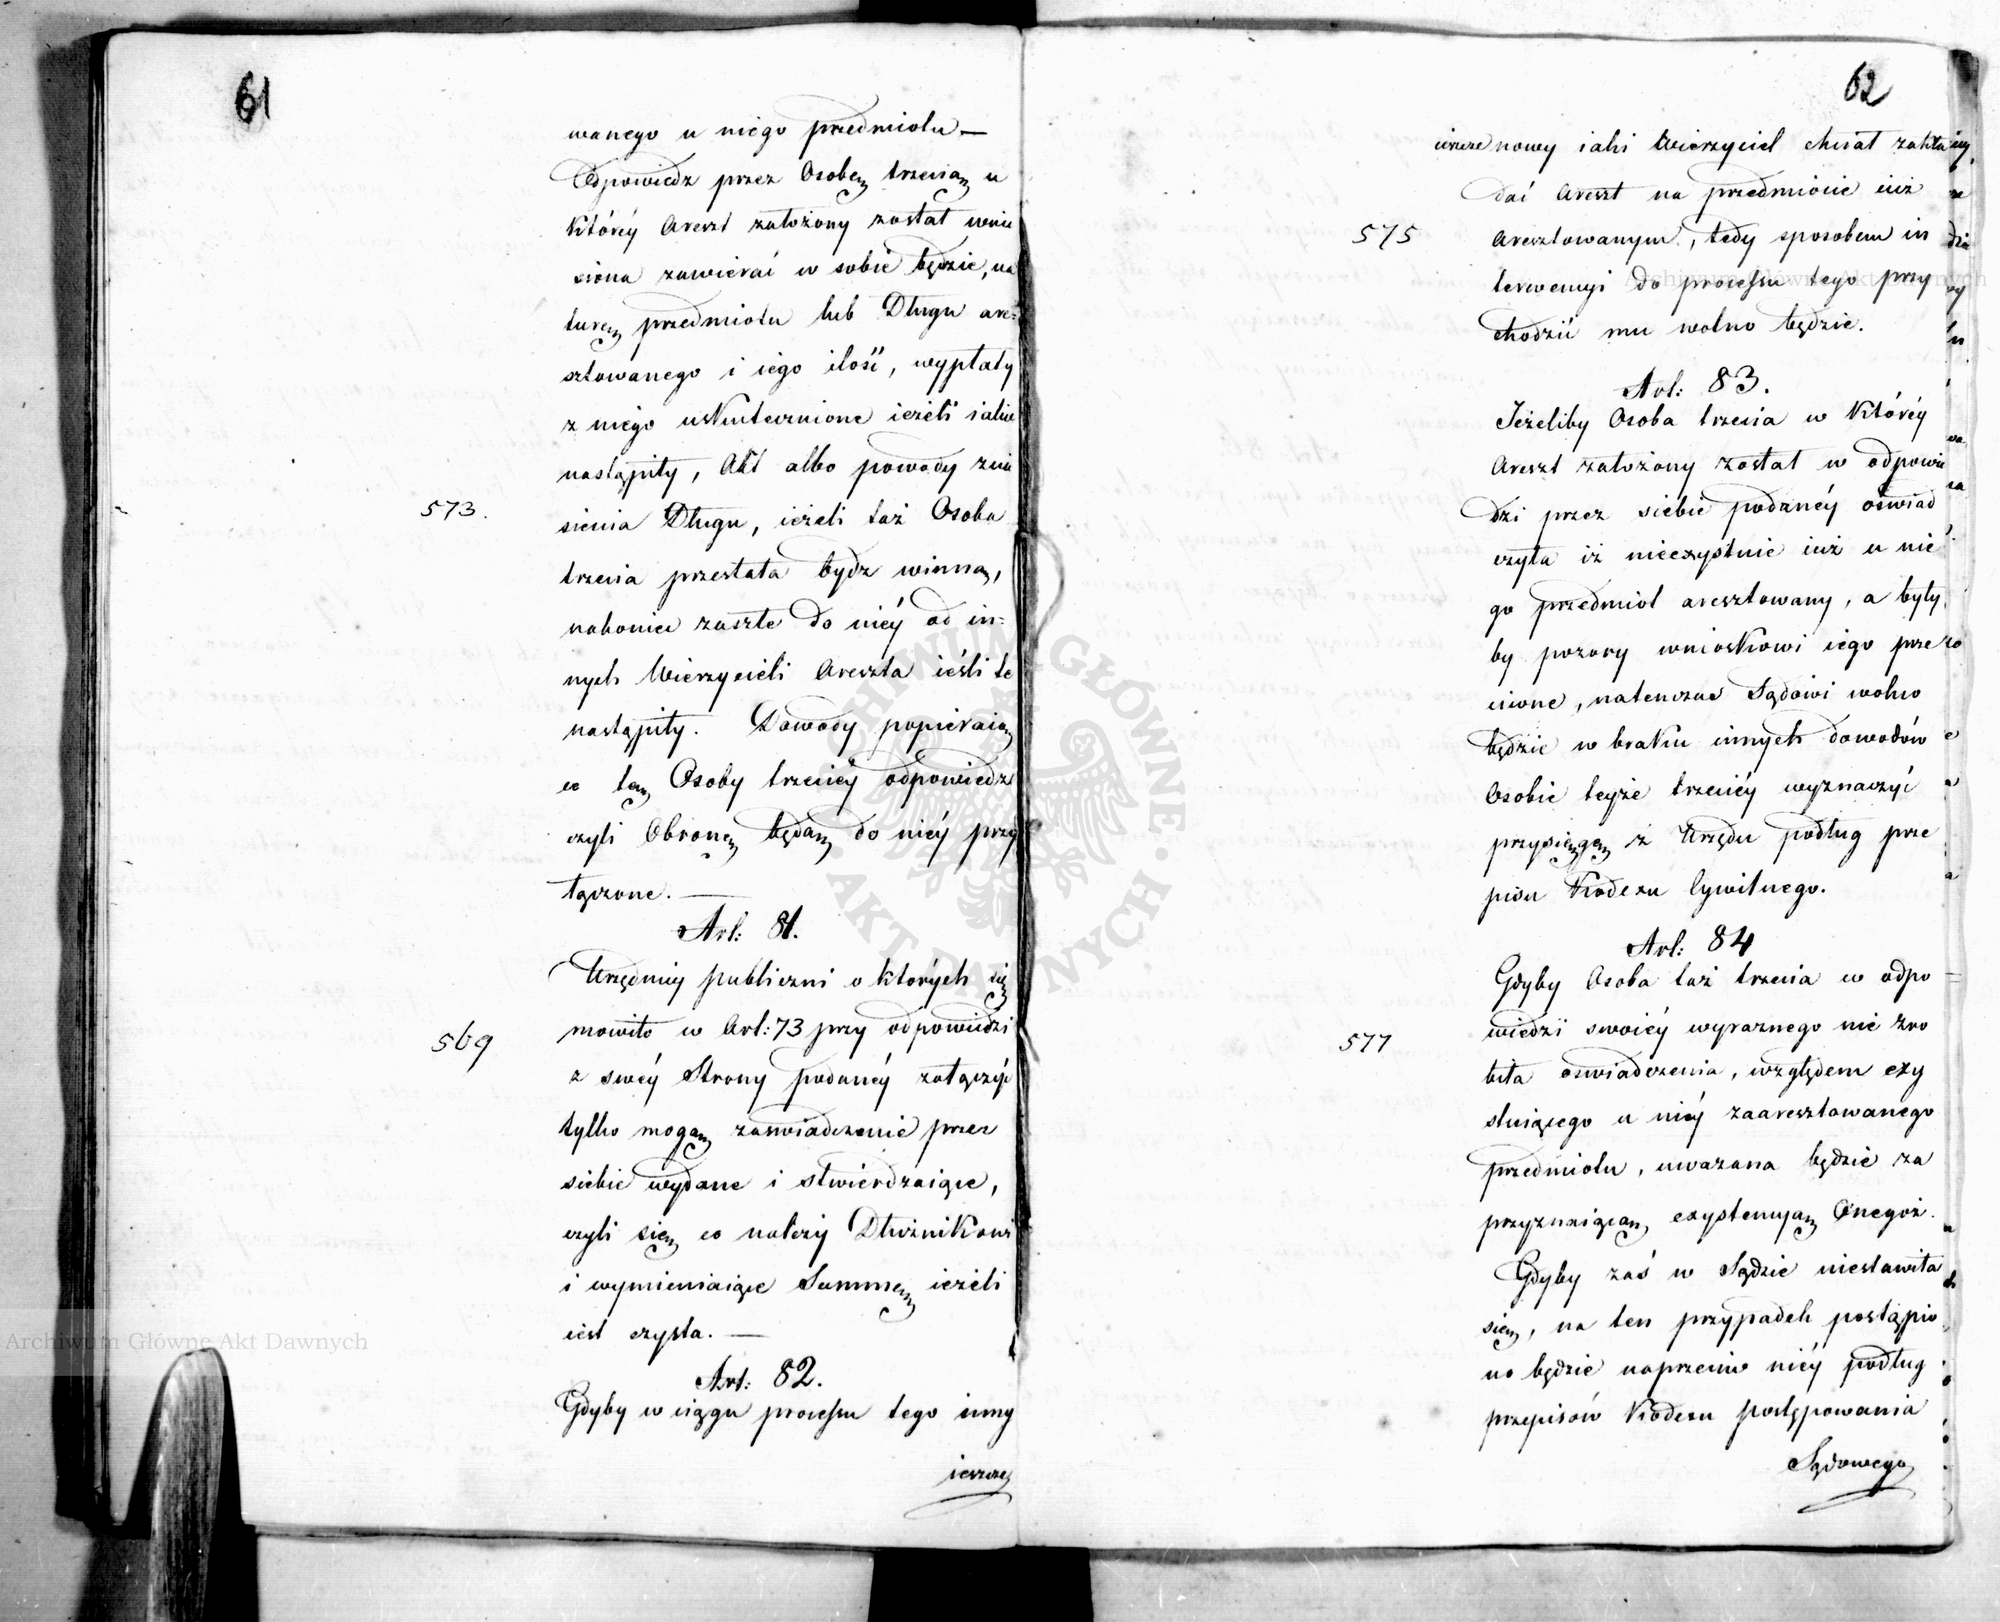 61
wanego u niego przedmiotu —
Odpowiedz przez Osobę trzecią u
któréy Areszt założony został wnie
siona zawierać w sobie będzie, na
turę przedmiotu lub Długu are=
sztowanego i iego ilość, wypłaty
z niego uskutecznione ieżeli iakie
nastąpiły, Akt albo powody znie
573.
sienia Długu, ieżeli taż Osoba
trzecia przestała bydz winną,
nakoniec zaszłe do niéy od in=
nych Wierzycieli Areszta ieśli te
nastąpiły. Dowody popieraią
ce tę Osoby trzeciéy odpowiedz
czyli Obronę będą do niéy przy
łączone. —
Art: 81.
Urzędnicy publiczni o których się
569
mowiło w Art: 73 przy odpowiedzi
z swéy Strony podanéy załączyć
tylko mogą zaswiadczenie przez
siebie wydane i stwierdzaiące,
czyli się co należy Dłużnikowi
i wymieniaiące Summę ieżeli
iest czysta. —
Art: 82.
Gdyby w ciągu processu tego inny
ieszcze
62
ieszcze nowy iaki Wierzyciel chciał zakła
dać Areszt na przedmiocie iuż
575
Aresztowanym, tedy sposobem in
terwencyi do processu tego przy
chodzić mu wolno będzie.
Art: 83.
Jeżeliby Osoba trzecia w któréy
Areszt założony został w odpowie
dzi przez siebie podanéy oświad
czyła iż nieexystuie iuż u nie
go przedmiot aresztowany, a były
by pozory wnioskowi iego prze
ciwne, natenczas Sądowi wolno
będzie w braku innych dowodów
Osobie teyże trzeciéy wyznaczyć
przysięgę z Urzędu podług prze
pisu Kodexu Cywilnego.
Art: 84
Gdyby Osoba taż trzecia w odpo
577
wiedzi swoiéy wyraznego nie zro
biła oswiadczenia, względem exy
stuiącego u niéy zaaresztowanego
przedmiotu, uwazana będzie za
przyznaiącą exystencyą Onegoż.
Gdyby zaś w Sądzie niestawiła
się, na ten przypadek postąpio
no będzie naprzeciw niéy podług
przepisów Kodexu postępowania
Sądowego
Archiwum Główne Akt Dawnych
Archiwum Główne Akt Dawnych
ARCHIWUM GŁÓWNE · AKT DAWNYCH ·